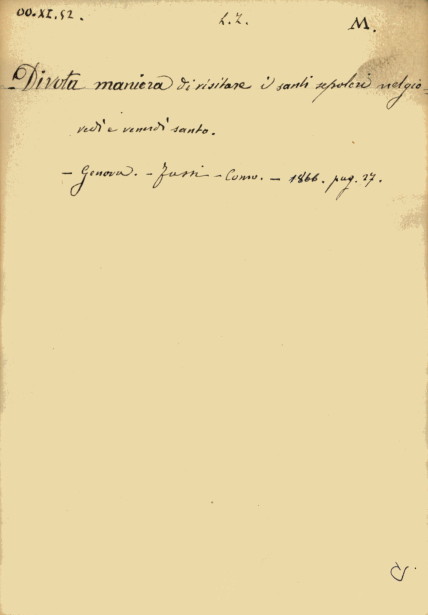 00.XI.52. L.Z. M.
Divota maniera di visitare i santi sepolcri nel gio-
vedì e venerdì santo.
– Genova. – – Como. – 1866. pag. 27.